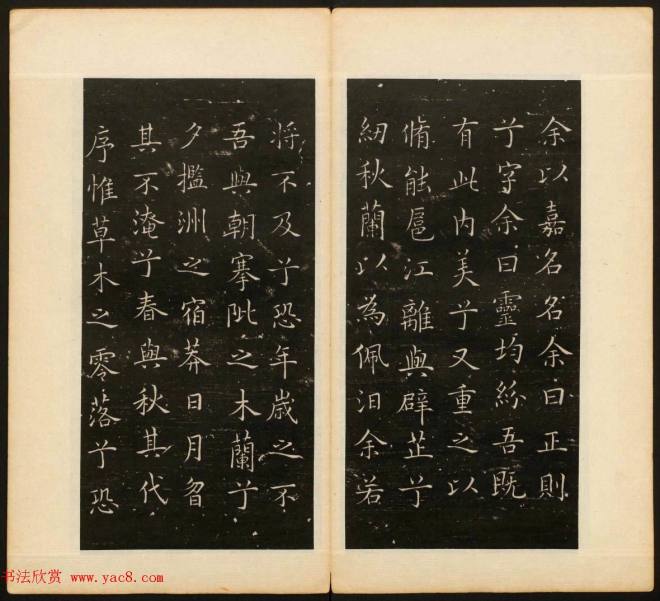 余以嘉名名余曰正則
兮字余曰靈均紛吾既
有此内美兮又重之以
脩能扈江離與辟芷兮
紉秋蘭以為佩汨余若
将不及兮恐年歳之不
吾與朝搴阰之木蘭兮
夕擥洲之宿莽日月曶
其不淹兮春與秋其代
序惟草木之零落兮恐
书法欣赏 www.yac8.com